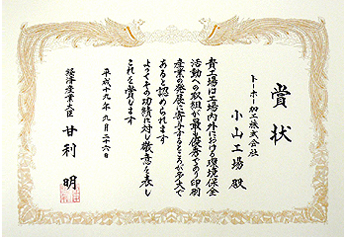 賞状
トーホー加工株式会社
小山工場 殿
貴工場は工場内外における環境保全
活動への取組が最も優秀であり印刷
産業の発展に寄与するところが多大で
あると認められます
よってその功績に対し敬意を表し
これを賞します
平成十九年九月二十六日
経済産業大臣 甘利 明